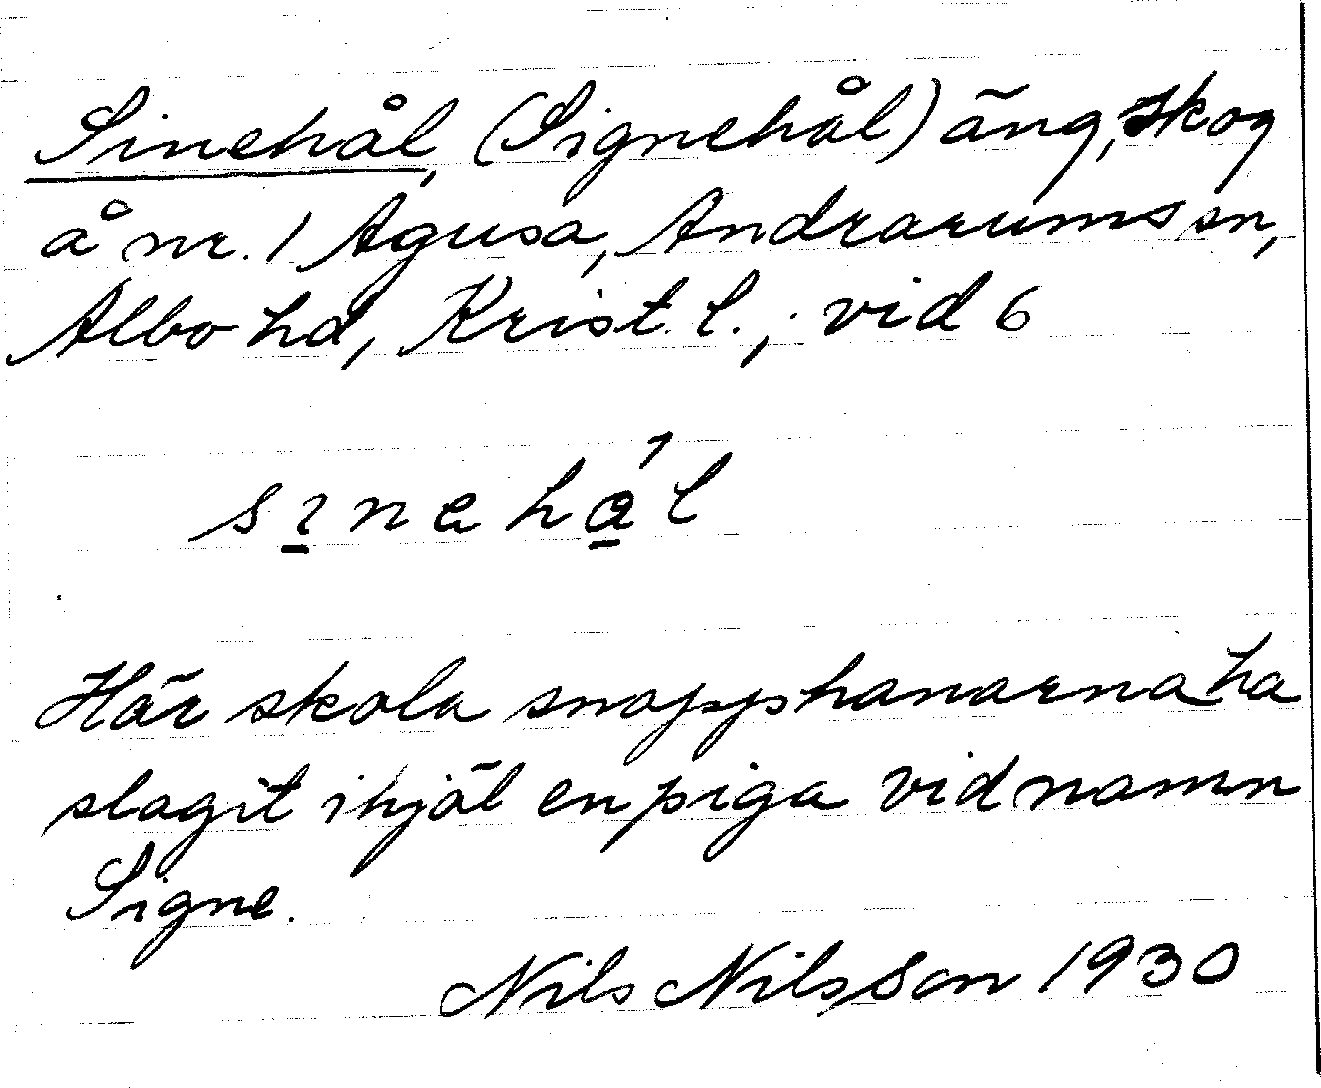 Sinehål, (Signehål) äng, skog
å nr. 1 Agusa, Andrarums sn,
Albo hd, Krist. l., vid 6
sı̱nehǻ̱l
Här skola snapphanarna ha
slagit ihjäl en piga vid namn
Signe.
Nils Nilsson 1930